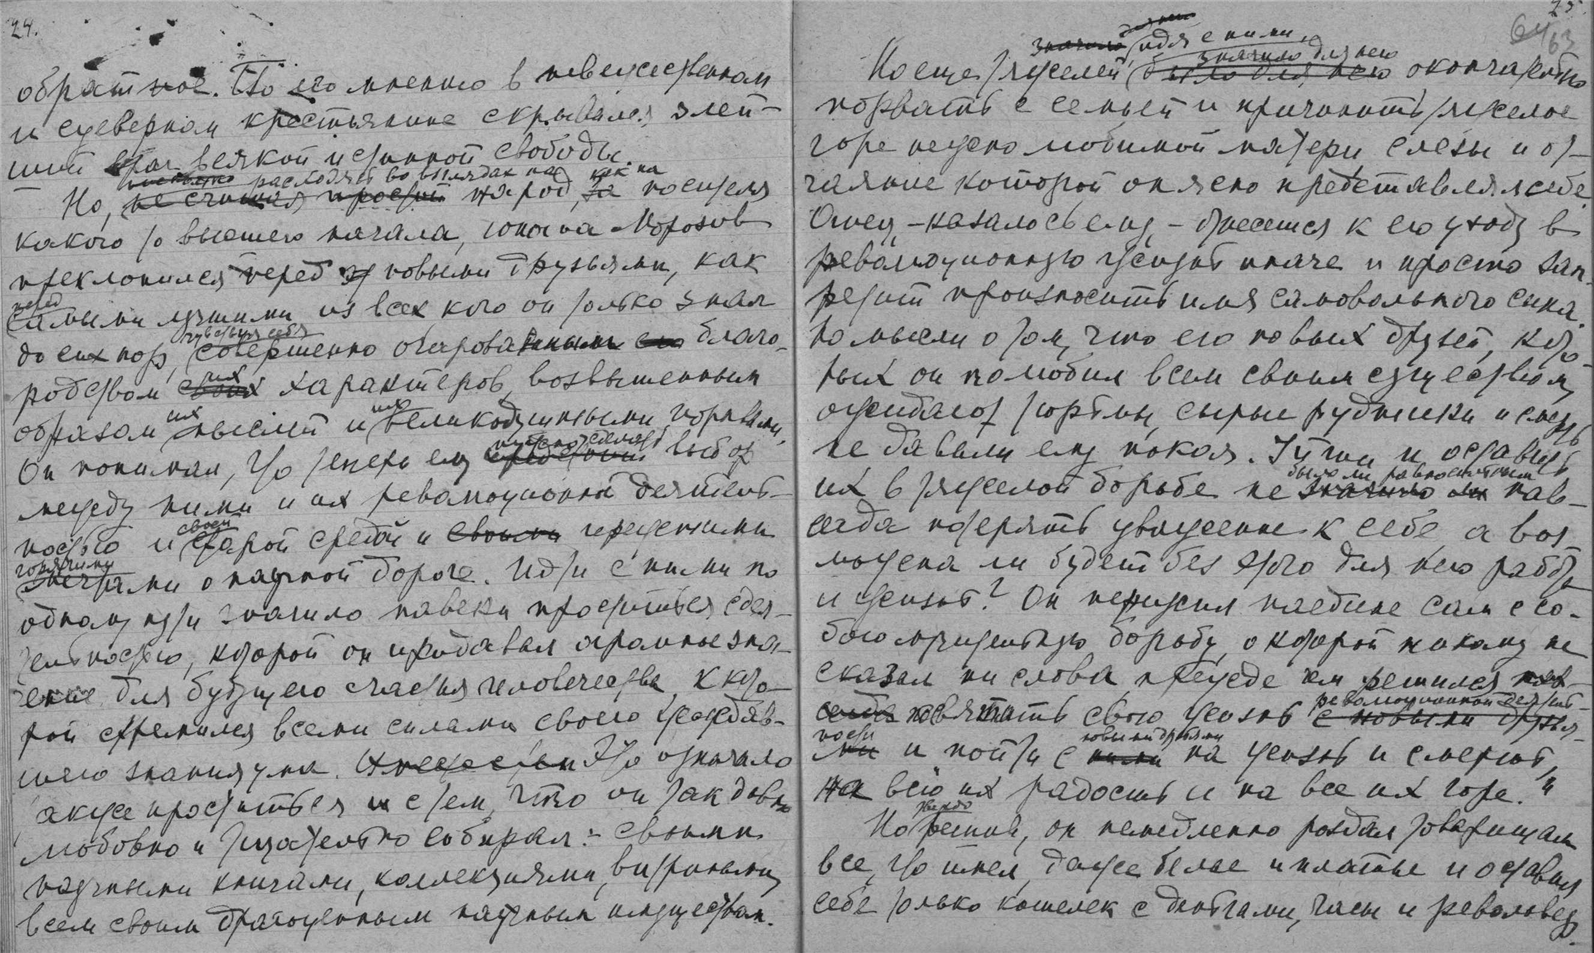 24.
обратное. По его мнению в невежественном
и суеверном крестьянине скрывался злей-
ший враг всякой истинной свободы.
расходясь во взглядах на как на
Но, не считая простой народ, за носителя
какого то высшего начала, юноша Морозов
преклонился перед новыми друзьями, как
перед
самыми лучшими из всех кого он только знал
чувствуя себя
до сих пор, совершенно очарованным его благо-
их
родством своих характеров, возвышенным
их их
образом мыслей и великодушными порывами.
нужно сделать
Он понимал, что теперь ему предстоит выбор
между ними и их революционной деятель-
своей
ностью и старой средой и своими прежними
горячими
мечтами о научной дороге. Идти с ними по
одному пути значило навеки проститься с дея-
тельностью, которой он придавал огромное зна-
чение для будущего счастья человечества, к кото-
рой стремился всеми силами своего жаждав-
шего знания ума. Это означало
также проститься и с тем, что он так давно
любовно и тщательно собирал:- своими
научными книгами, коллекциями, витринами,
всем своим драгоценным научным имуществом.
25.
64 63
значило идя с ними,
значило для него
Но еще тяжелей было для него окончательно
порвать с семьей и причинить тяжелое
горе нежно любимой матери слезы и от-
чаяние которой он ясно представлял себе.
Отец - казалось ему - отнесется к его уходу в
революционную жизнь иначе и просто зап-
ретит произносить имя самовольного сына.
Но мысли о том, что его новых друзей, кото-
рых он полюбил всем своим существом,
ожидают тюрьмы, сырые рудники и смерть
не давали ему покоя. Уйти и оставить
было ли равносильным
их в тяжелой борьбе не значило ли нав-
сегда потерять уважение к себе а воз-
можна ли будет без этого для него работа
и жизнь? Он пережил наедине сам с со-
бою мучительную борьбу, о которой никому не
сказал ни слова прежде чем решился нав-
революционной деятель-
сегда посвятить свою жизнь с новыми друзья-
ности новыми друзьями
ми и пойти с ними на жизнь и смерть,
на всю их радость и на все их горе."
твердо
Но решив, он немедленно роздал товарищам
все, что имел, даже белье и платье и оставил
себе только кошелек с деньгами, часы и револьвер.